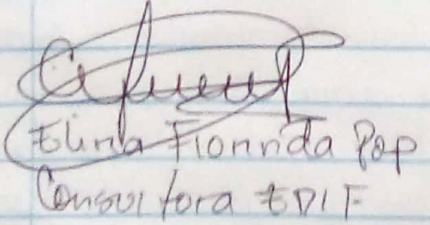 Elina Florinda Pop
Consultora EDIF